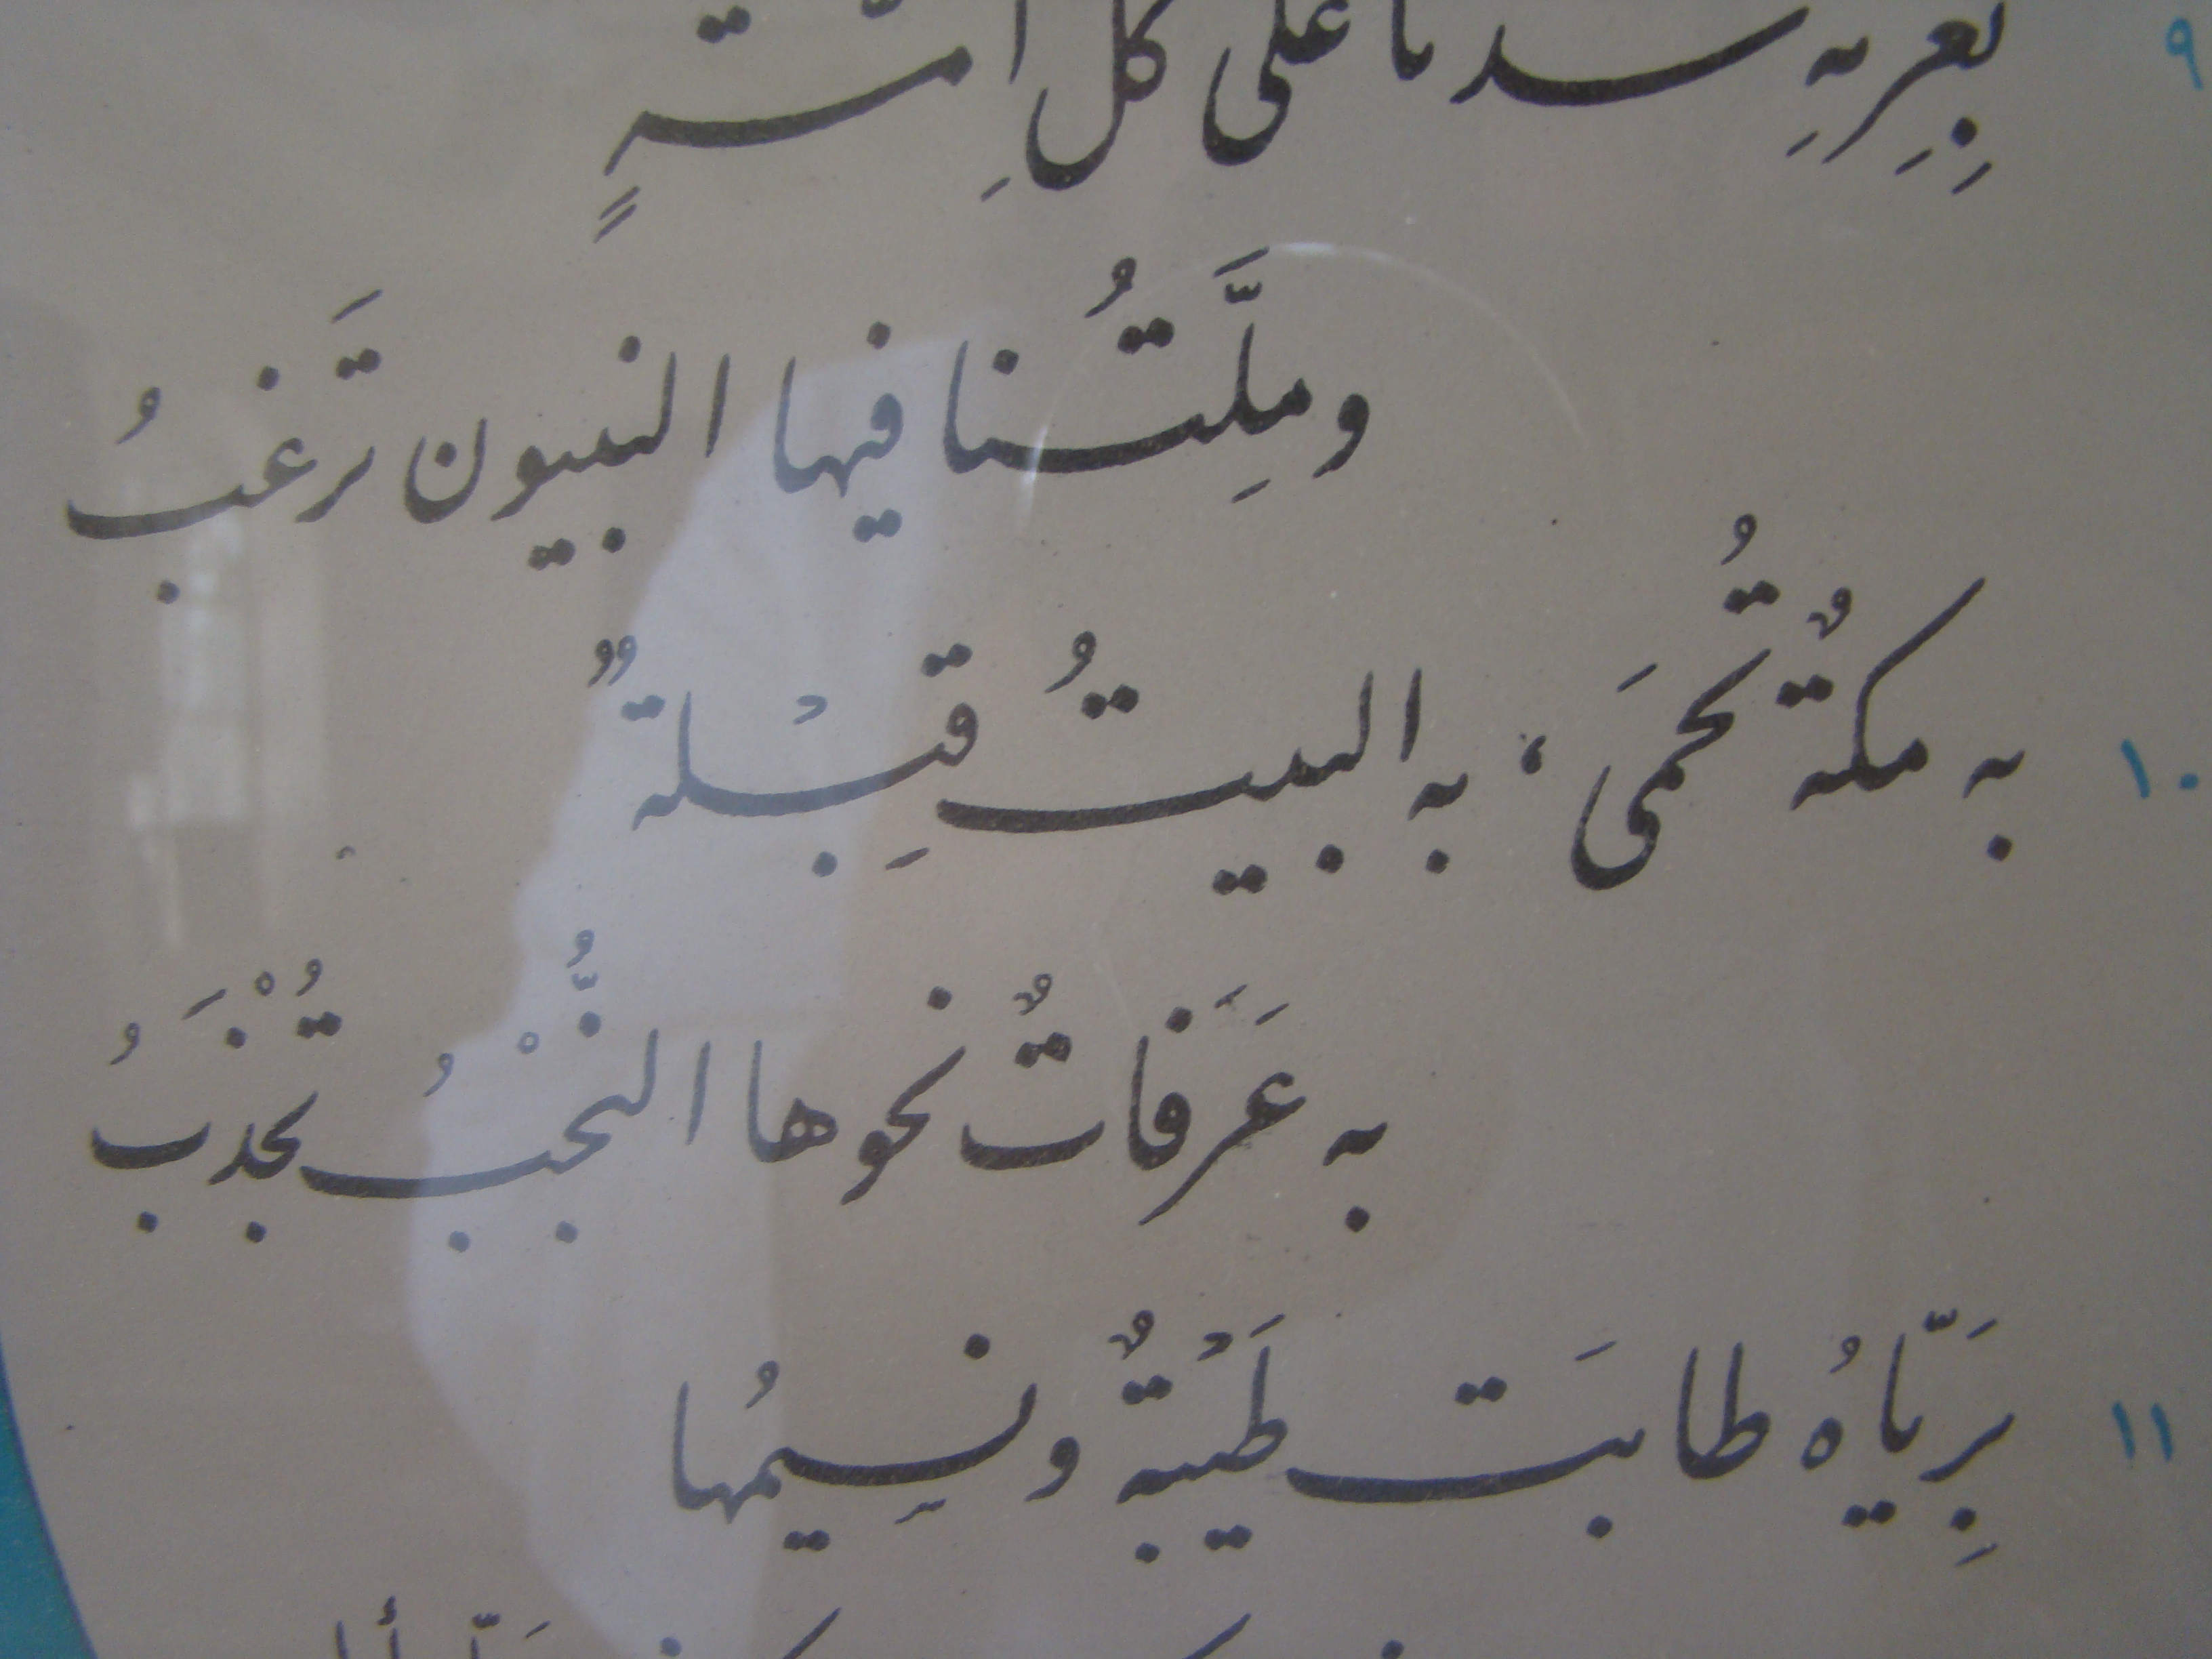 ٩ بِعِزِهِ سدنا على كلِ امّةٍ
وملَِّتُنا فيها النبيون تَرغبُ
١٠ به مكةٌ تُحمَى، به البيتُ قِبْلةٌ
به عَرَفاتٌ نحوها النُّجْبُ تُجْذَبُ
١١ بِرَيّاهُ طابَت طَيْبةٌ ونسِيمُها